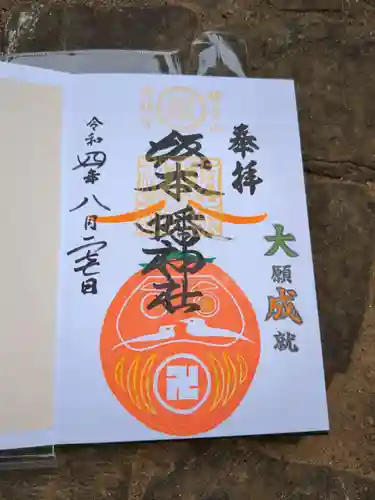 奉拝
大願成就
坂本八幡神社
令和四年八月二七日
卍